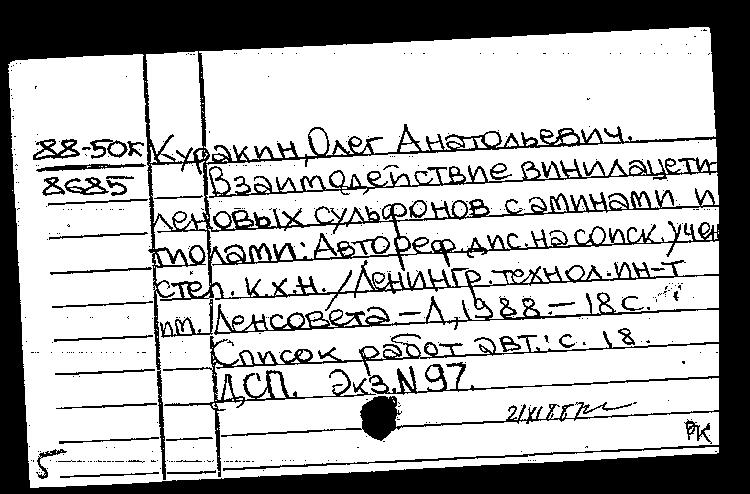 88-50К Куракин, Олег Анатольевич.
8685 Взаимодействие винилацети-
леновых сульфонов с аминами и
тиолами: Автореф. дис. на соиск. учен
степ. к.х.н. / Ленингр. технол. ин-т
им. Ленсовета – Л., 1988. – 18 с.
Список работ авт.: с. 18.
ДСП. Экз. N 97.
21/XI 88
РК
5